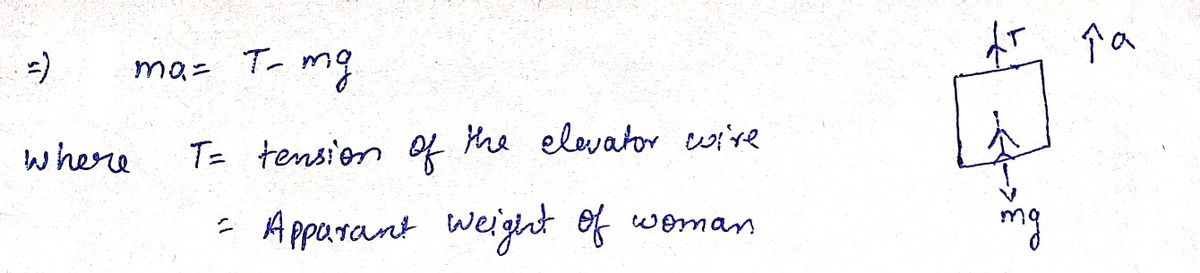 =) ma = T - mg
where T = tension of the elevator wire
= Apparant weight of woman
T ↑a
mg